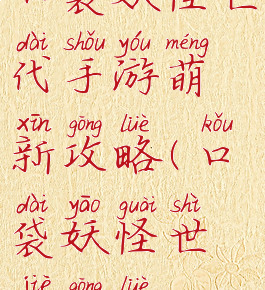 袋妖怪世
dài shǒu yóu méng
代手游萌
xīn gōng lüè kǒu
新攻略(口
dài yāo guài shì
袋妖怪世
jiè gōng lüè